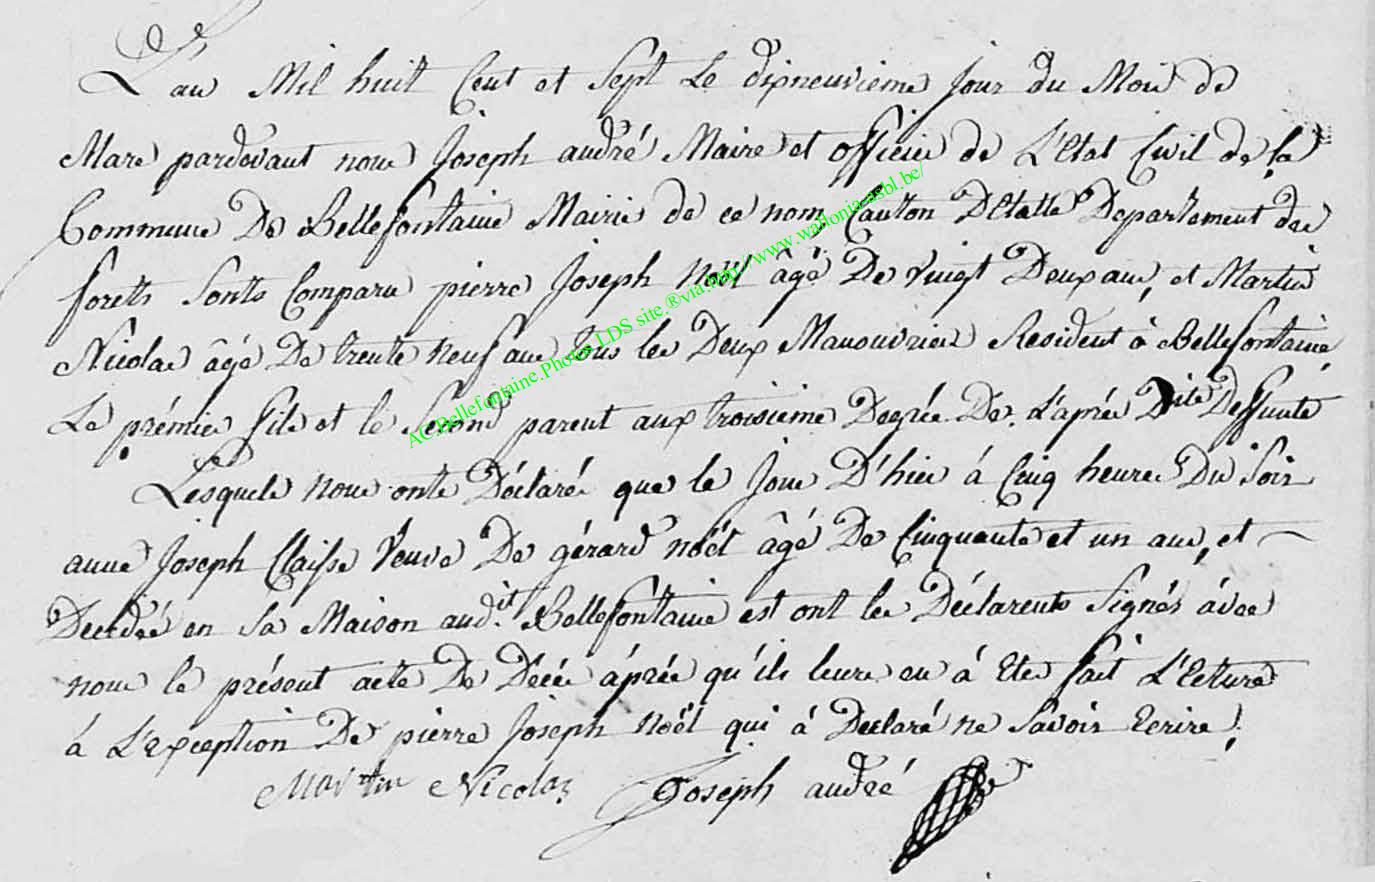 L'an Mil huit Cent et Sept Le dixneuvieme Jour du Mois de
Mars pardevant nous Joseph andré Maire et officier de L'Etat Civil de la
Commune De Bellefontaine Mairie de ce nom, Canton D'Etalle Departement des
forets Sonts Comparu pierre Joseph Noël âgé De vingt Deux ans, et Martin
Nicolas âgé De trente neuf ans tous les Deux Manouvriers Resident à Bellefontaine
Le prémier fils et le Second parent aux troisieme Degrée De L'aprés Dite Deffunte
Lesquels nous onts Déclaré que le Jour D'hier à Cinq heures Du Soir
anne Joseph Claisse Veuve De gérard noël âgé De Cinquante et un ans, et
Decedée en Sa Maison aud.it Bellefontaine est ont les Déclarents Signés avec
nous le présent acte De Décés áprés qu'ils leurs en à Ete fait L'Ecture
á L'Exception De pierre Joseph Noël qui à Declaré ne Savoir Ecrire.
Martin Nicolas Joseph andré
AC.Bellefontaine.Photos LDS site.®via.http://www.wallonia-asbl.be/